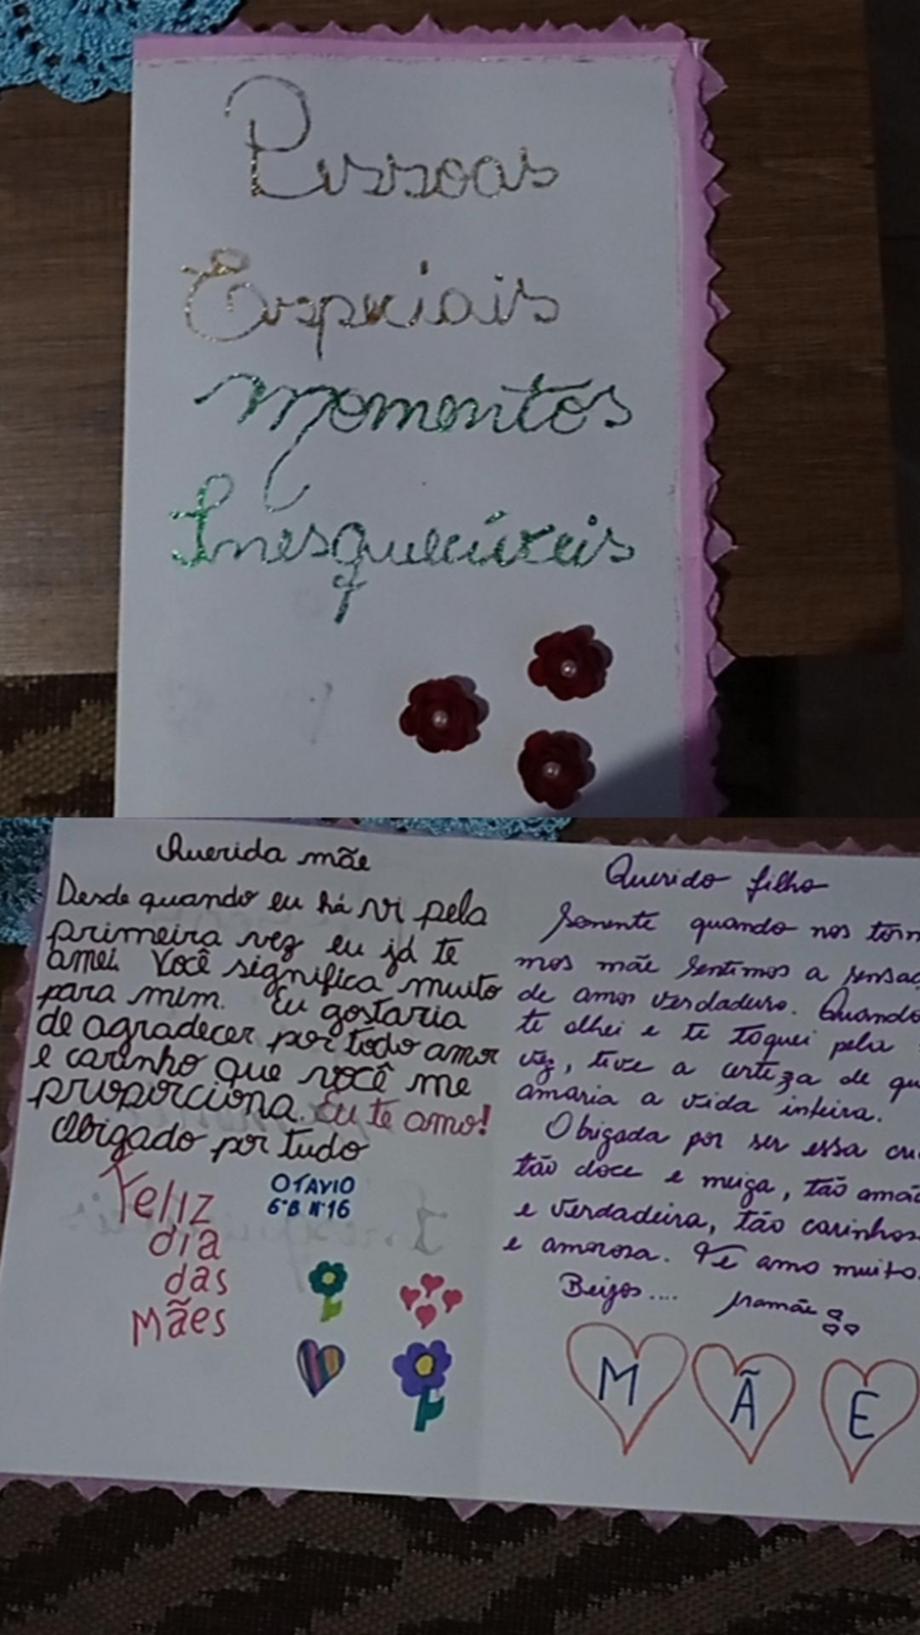 Pessoas
Especiais
Momentos
Inesquecíveis
Querida mãe
Desde quando eu há vi pela
primeira vez eu já te
amei. Você significa muito
para mim. Eu gostaria
de agradecer por todo amor
e carinho que você me
proporciona. Eu te amo!
Obrigado por tudo
Feliz
dia
das
Mães
OTAVIO
6ºB Nº16
Querido filho
Somente quando nos torn
mos mãe sentimos a sensaç
de amor verdadeiro. Quando
te olhei e te toquei pela
vez, tive a certeza de qu
amaria a vida inteira.
Obrigada por ser essa cri
tão doce e meiga, tão amá
e verdadeira, tão carinhos
e amorosa. Te amo muito.
Beijos.... Mamãe
M Ã E